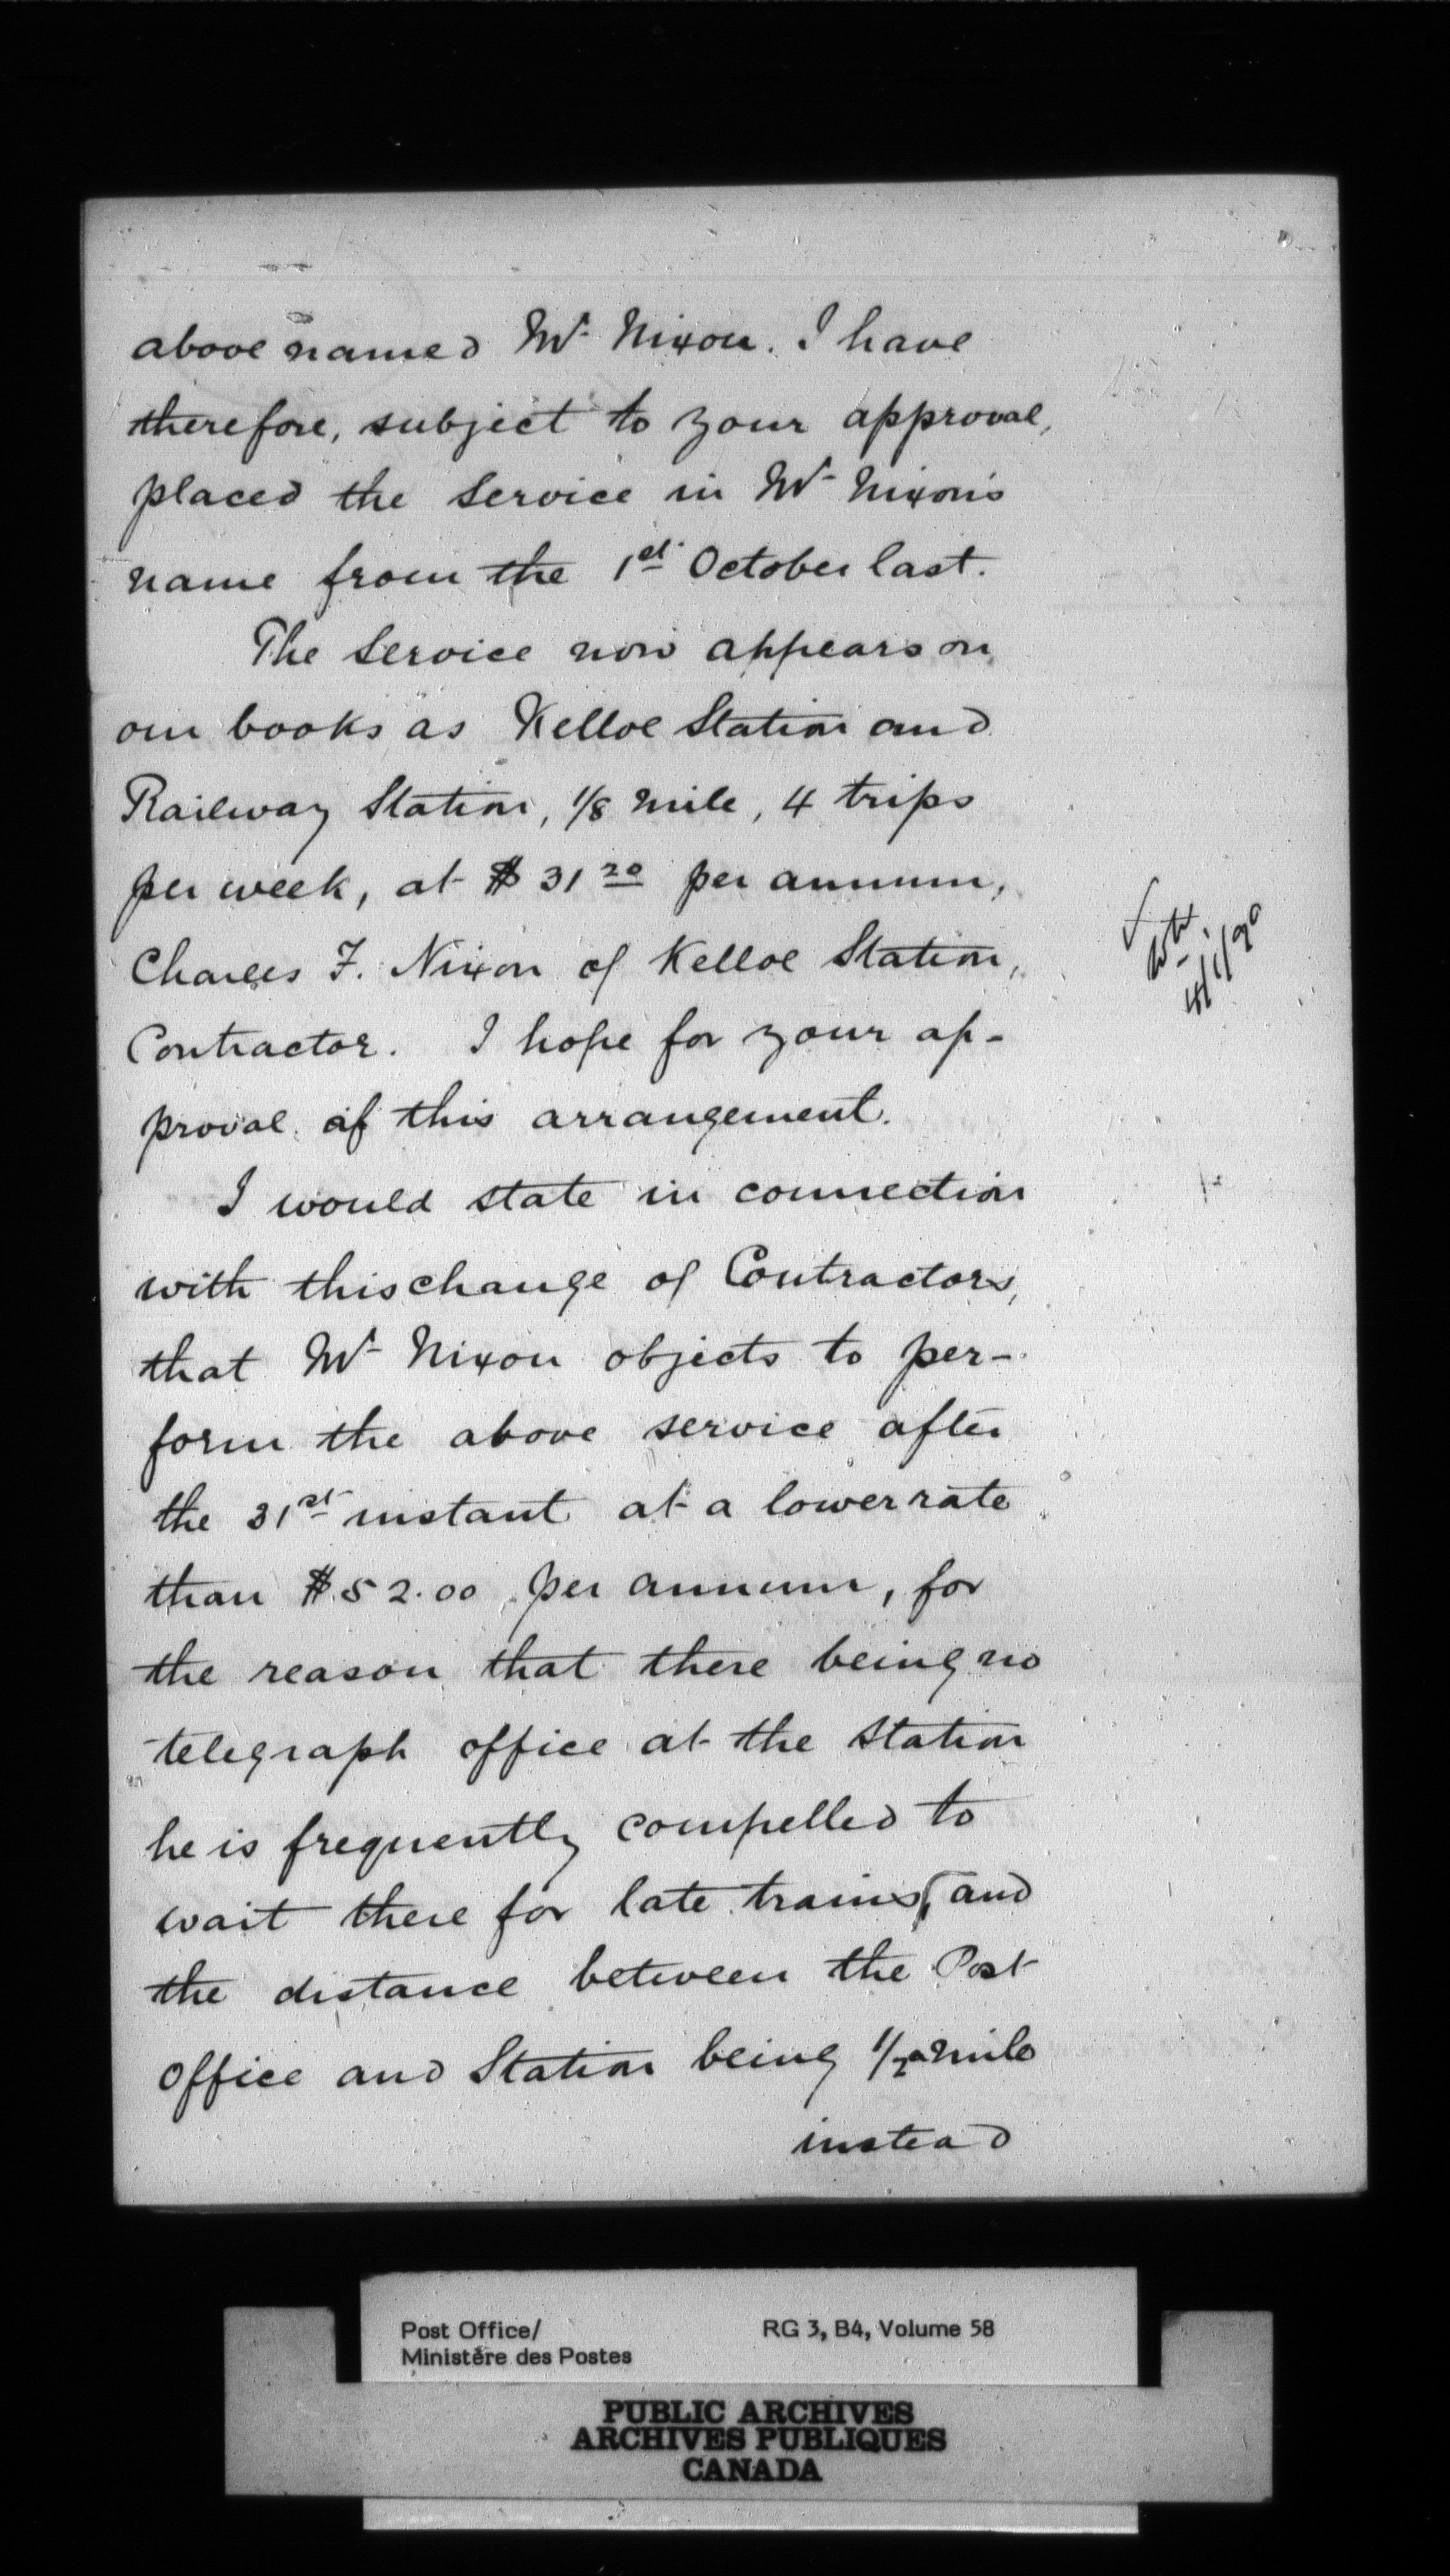 above named Mr. Nixon. I have
therefore, subject to your approval,
placed the Service in Mr. Nixon's
name from the 1st October last.
The Service now appears on
our books as Kelloe Station and
Railway Station, 1/8 mile, 4 trips
per week, at $31 20 per annum,
Charles F. Nixon of Kelloe Station,
Contractor. I hope for your ap-
proval of this arrangement.
I would state in connection
with this change of Contractors,
that Mr. Nixon objects to per-
form the above service after
the 31st instant at a lower rate
than $52.00 per annum, for
the reason that there being no
telegraph office at the Station
he is frequently compelled to
wait there for late trains, and
the distance between the Post
Office and Station being 1/2 a mile
instead
4/1/90
Post Office/
Ministère des Postes
RG 3, B4, Volume 58
PUBLIC ARCHIVES
ARCHIVES PUBLIQUES
CANADA